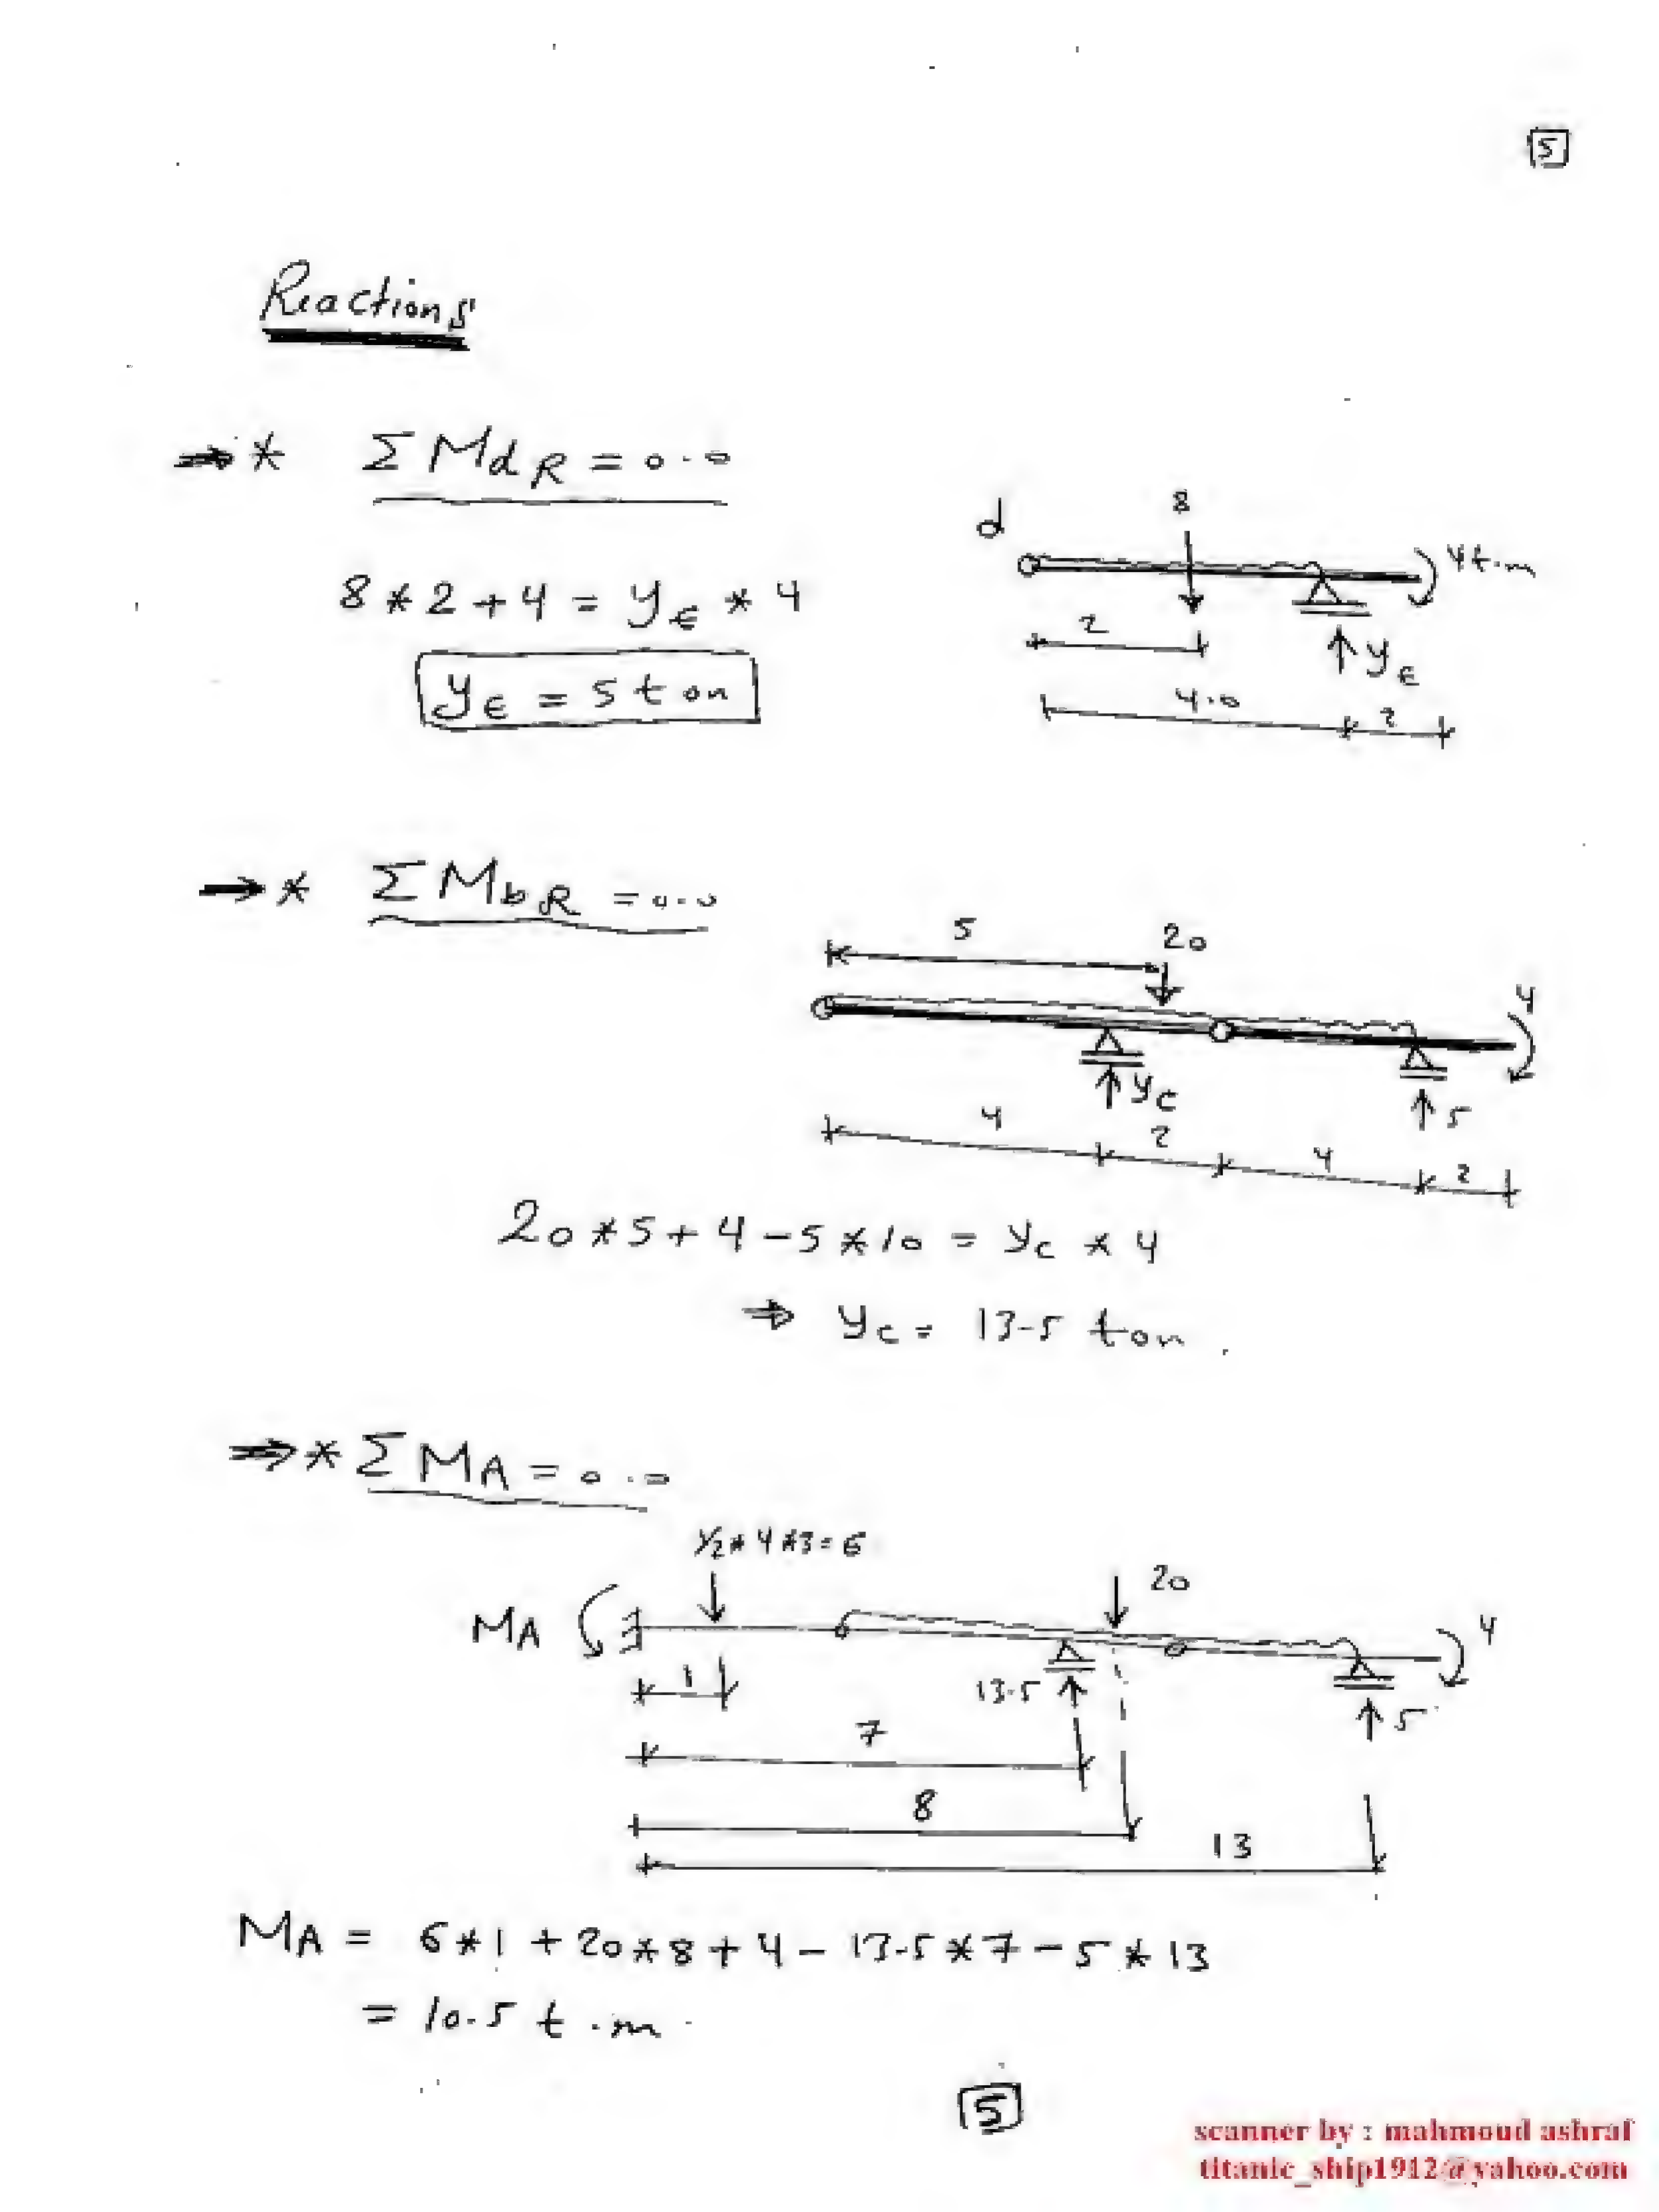 5
Reactions
⇒* ΣMdR = 0.0
d
8
4t.m
8*2+4 = yE * 4
2
yE
yE = 5 ton
4.0 2
→* ΣMbR = 0.0
5 20
4
yc
5
4 2 4 2
20*5+4-5*10 = yc * 4
⇒ yc = 13.5 ton.
⇒* ΣMA = 0.0
1/2*4*3=6
20
MA
4
1
13.5
5
7
8
13
MA = 6*1+20*8+4-13.5*7-5*13
= 10.5 t.m.
5
scanner by : mahmoud ashraf
titanic_ship1912@yahoo.com